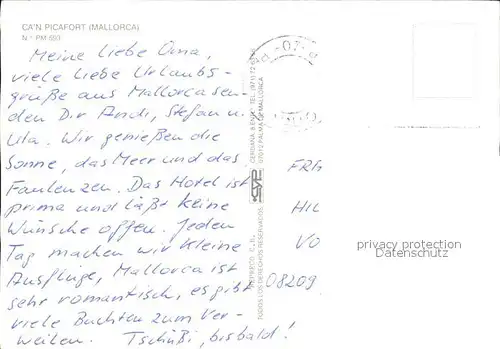 CA'N PICAFORT (MALLORCA)
N.° PM 693
Meine liebe Oma,
viele liebe Urlaubs-
grüße aus Mallorca sen-
den Dir Andi, Stefan u.
Uta. Wir genießen die
Sonne, das Meer und das
Faulenzen. Das Hotel ist
prima und läßt keine
Wünsche offen. Jeden
Tag machen wir kleine
Ausflüge, Mallorca ist
sehr romantisch, es gibt
viele Buchten zum Ver-
weilen. Tschüßi, bis bald!
- 07 -
TODOS LOS DERECHOS RESERVADOS
07012 PALMA DE MALLORCA
HIL
VO
08209
privacy protection
Datenschutz